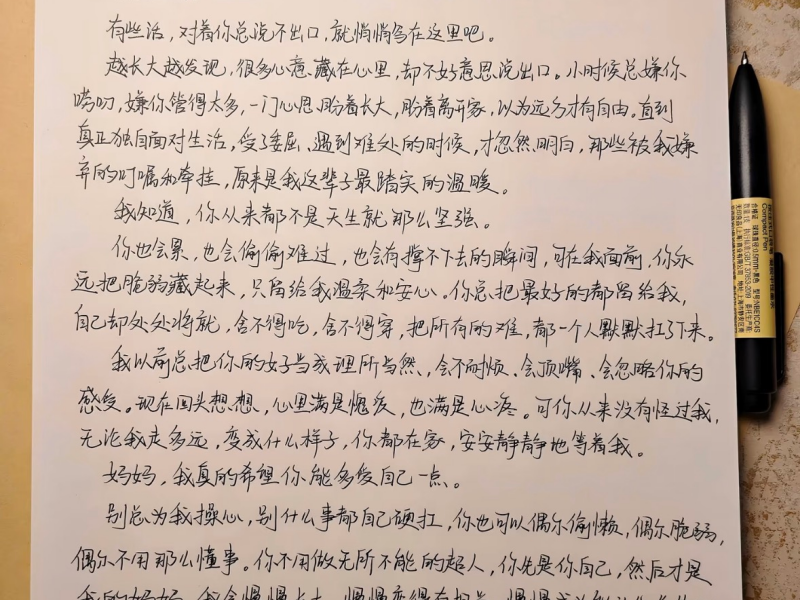 有些话，对着你总说不出口，就悄悄写在这里吧。
越长大越发现，很多心意藏在心里，却不好意思说出口。小时候总嫌你
唠叨，嫌你管得太多，一门心思盼着长大，盼着离开家，以为远方才有自由。直到
真正独自面对生活，受了委屈、遇到难处的时候，才忽然明白，那些被我嫌
弃的叮嘱和牵挂，原来是我这辈子最踏实的温暖。
我知道，你从来都不是天生就那么坚强。
你也会累，也会偷偷难过，也会有撑不下去的瞬间，可在我面前，你永
远把脆弱藏起来，只留给我温柔和安心。你总把最好的都留给我，
自己却处处将就，舍不得吃，舍不得穿，把所有的难，都一个人默默扛了下来。
我以前总把你的好当成理所当然，会不耐烦、会顶嘴、会忽略你的
感受。现在回头想想，心里满是愧疚，也满是心疼。可你从来没有怪过我，
无论我走多远，变成什么样子，你都在家，安安静静地等着我。
妈妈，我真的希望你能多爱自己一点。
别总为我操心，别什么事都自己硬扛，你也可以偶尔偷懒，偶尔脆弱，
偶尔不用那么懂事。你不用做无所不能的超人，你先是你自己，然后才是
Compact Pen